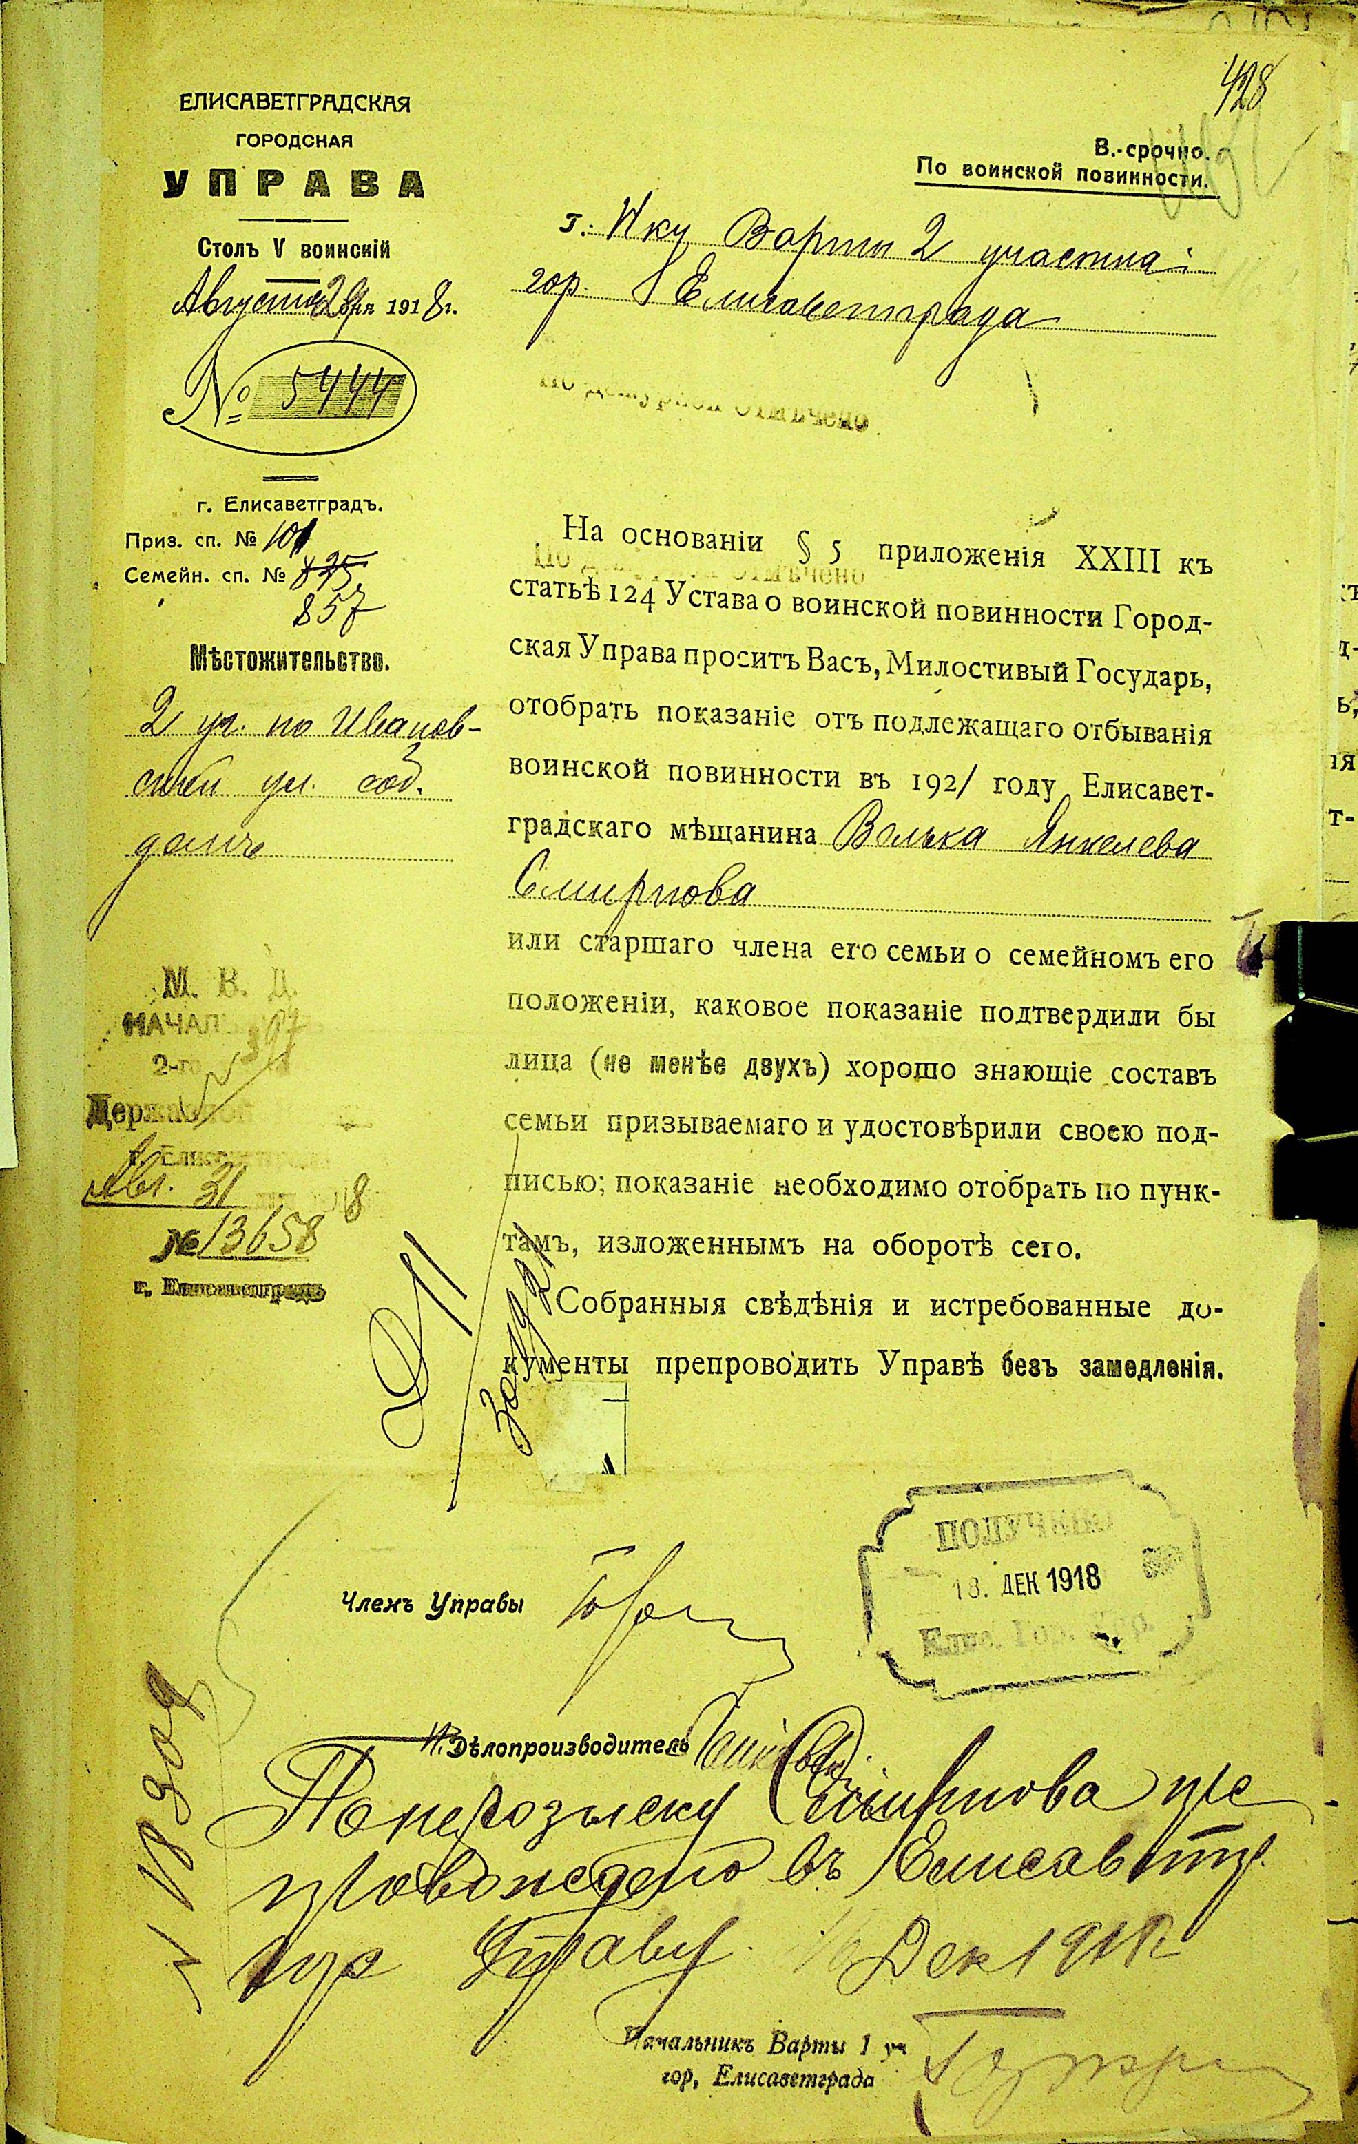 428
ЕЛИСАВЕТГРАДСКАЯ
ГОРОДСКАЯ
УПРАВА
Столъ V воинскій
Августа 29 дня 1918 г.
№ 5444
г. Елисаветградъ.
Приз. сп. № 101
Семейн. сп. № 875
857
Мѣстожительство.
2 уч. по Иванов-
ской ул. соб.
домъ
В.-срочно.
По воинской повинности.
г. Нку Варты 2 участка
гор. Елисаветграда
отмѣчено
отмѣчено
На основаніи § 5 приложенія XXIII къ
статьѣ 124 Устава о воинской повинности Город-
ская Управа проситъ Васъ, Милостивый Государь,
отобрать показаніе отъ подлежащаго отбыванія
воинской повинности въ 192/ году Елисавет-
градскаго мѣщанина Волька Янкелева
Смирнова
или старшаго члена его семьи о семейномъ его
положеніи, каковое показаніе подтвердили бы
лица (не менѣе двухъ) хорошо знающіе составъ
семьи призываемаго и удостовѣрили своею под-
писью; показаніе необходимо отобрать по пунк-
тамъ, изложеннымъ на оборотѣ сего.
Собранныя свѣдѣнія и истребованные до-
кументы препроводить Управѣ безъ замедленія.
М. В. Д.
2-го
г. Елисаветграда
Авг. 31 1918
№ 13658
г. Елисаветградъ
ПОЛУЧЕНО
18. ДЕК 1918
Елис. Гор. Упр.
Членъ Управы
И. Дѣлопроизводитель
По нерозыску Смирнова пре
провождено въ Елисаветгр.
гор Управу. Дек 1918
Начальникъ Варты 1 уч
гор, Елисаветграда